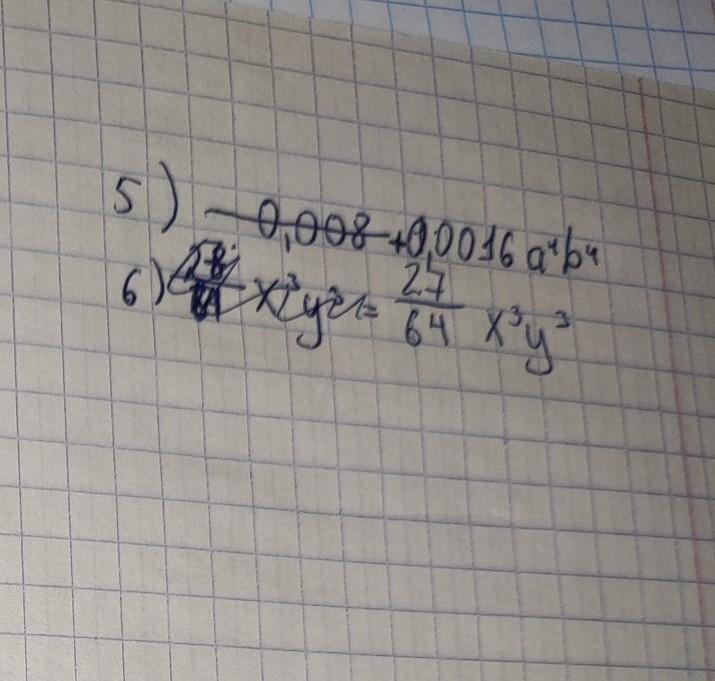 5) -0,008 +0,0016 a⁴b⁴
6) x³y³= 27/64 x³y³